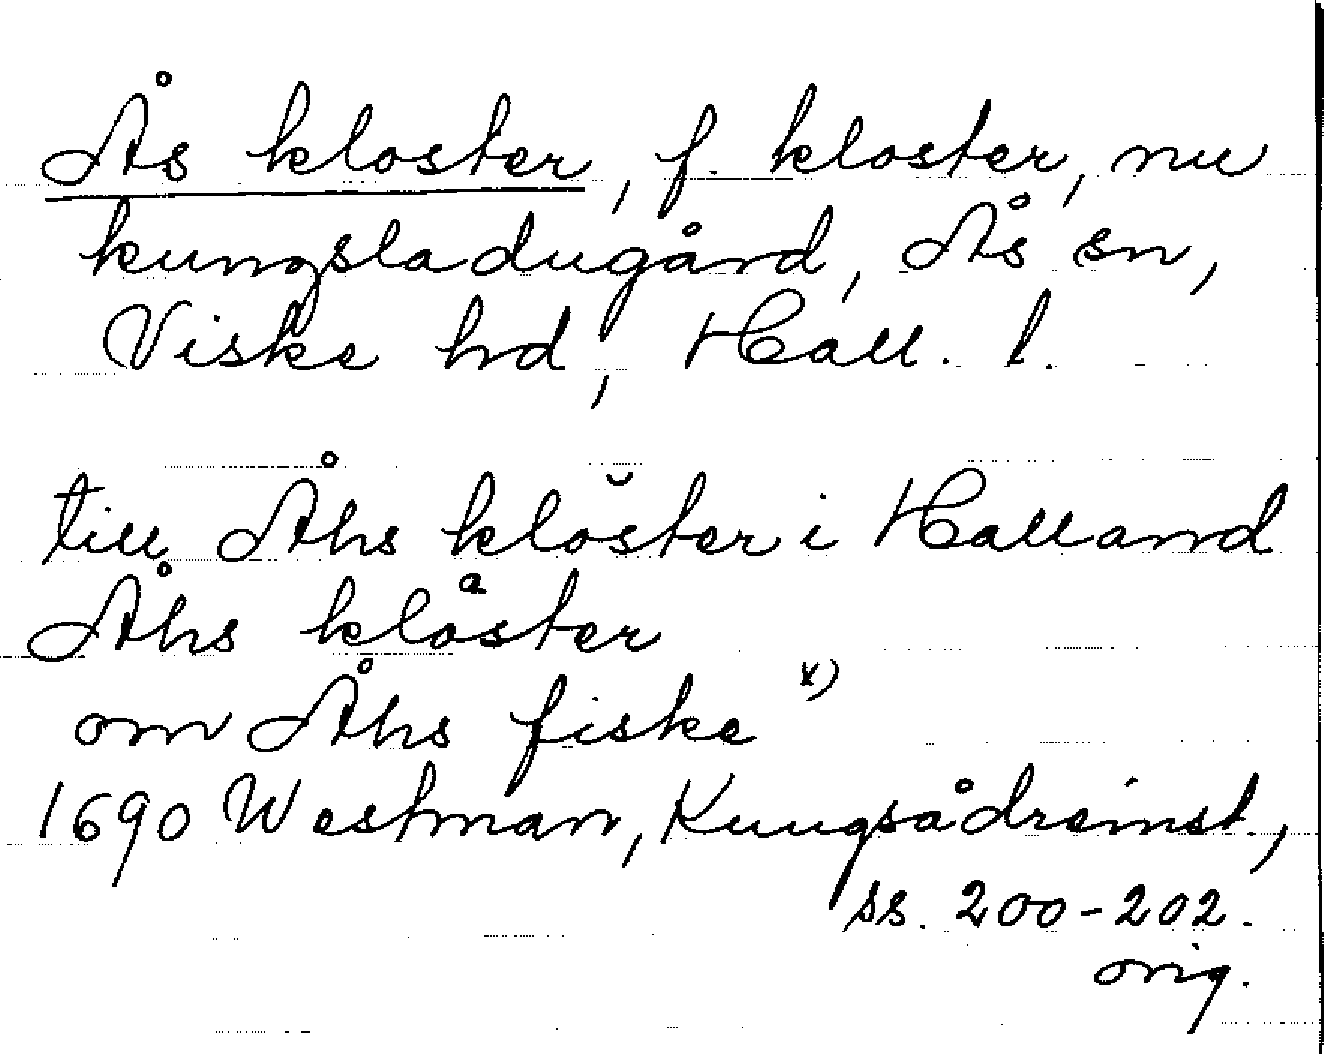 Ås kloster, f. kloster, nu
kungsladugård, Ås sn,
Viske hd, Hall. l.
till Åhs klŏster i Halland
Åhs klåster
om Åhs fiske x)
1690 Westman, Kungsådreinst.,
ss. 200-202.
orig.